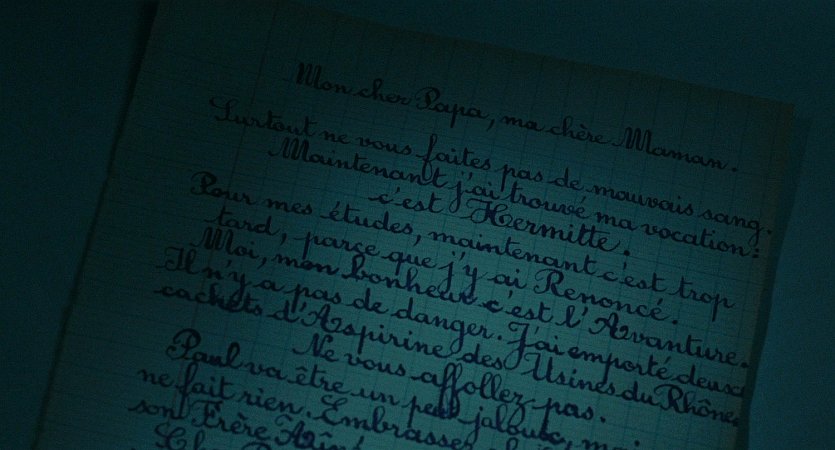 Mon cher Papa, ma chère Maman.
Surtout ne vous faites pas de mauvais sang.
Maintenant j'ai trouvé ma vocation:
c'est Hermitte.
Pour mes études, maintenant c'est trop
tard, parce que j'y ai Renoncé.
Moi, mon bonheur c'est l'Avanture.
Il n'y a pas de danger. J'ai emporté deux
cachets d'Aspirine des Usines du Rhône.
Ne vous affollez pas.
Paul va être un peu jaloux,
ne fait rien. Embrassez
son Frère Aîné